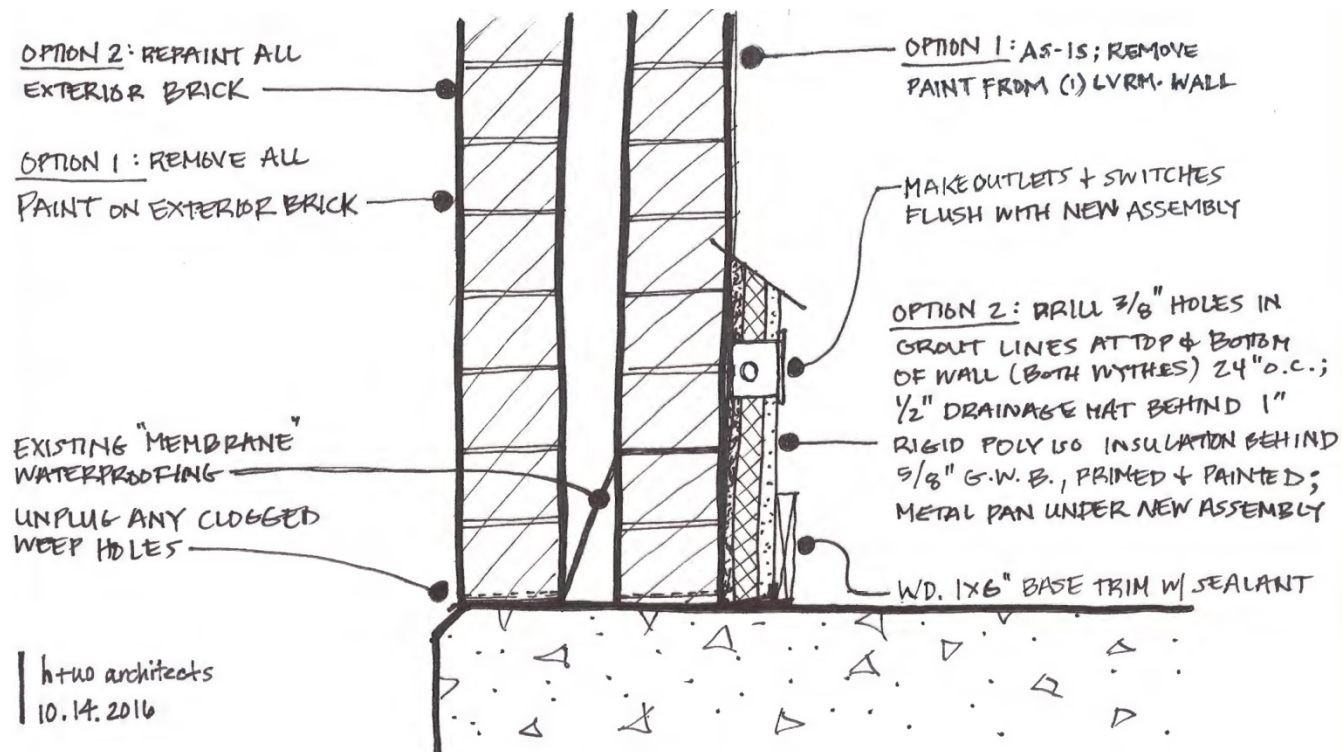 OPTION 2: REPAINT ALL
EXTERIOR BRICK
OPTION 1: REMOVE ALL
PAINT ON EXTERIOR BRICK
EXISTING "MEMBRANE"
WATERPROOFING
UNPLUG ANY CLOGGED
WEEP HOLES
h+uo architects
10.14.2016
OPTION 1: AS-IS; REMOVE
PAINT FROM (1) LVRM. WALL
MAKE OUTLETS + SWITCHES
FLUSH WITH NEW ASSEMBLY
OPTION 2: DRILL 3/8" HOLES IN
GROUT LINES AT TOP & BOTTOM
OF WALL (BOTH WYTHES) 24" O.C.;
1/2" DRAINAGE MAT BEHIND 1"
RIGID POLY ISO INSULATION BEHIND
5/8" G.W.B., PRIMED + PAINTED;
METAL PAN UNDER NEW ASSEMBLY
WD. 1X6" BASE TRIM W/ SEALANT